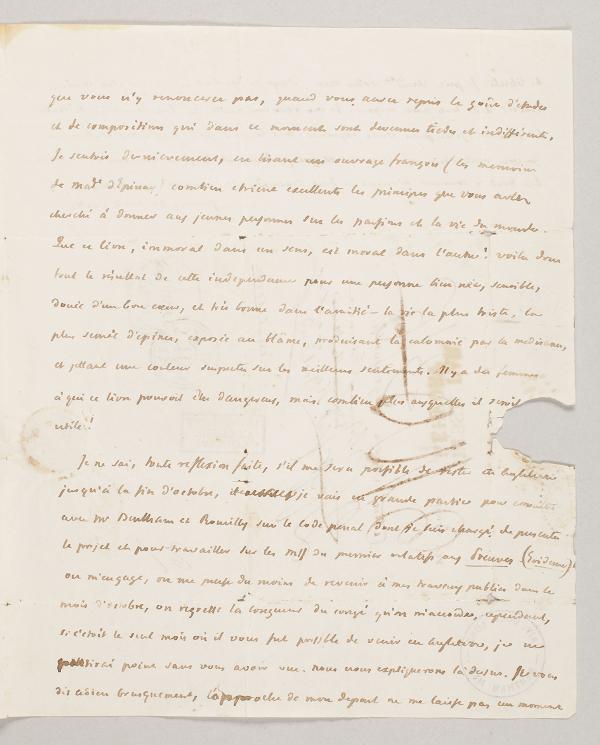 que vous n'y renoncerez pas, quand vous aurez repris le goût d'etudes
et de compositions qui dans ce moment sont devenues tiedes et indifferentes,
Je sentois dernierement, en lisant un ouvrage françois (les memoires
de Made d'Epinay) combien etoient excellents les principes que vous avez
cherché à donner aux jeunes personnes sur les passions et la vie du monde.
Que ce livre, immoral dans un sens, est moral dans l'autre! voila donc
tout le résultat de cette independance pour une personne bien née, sensible,
douée d'un bon cœur, et très bonne dans l'amitié – la vie la plus triste, la
plus semée d'epines, exposée au blâme, produisant la calomnie par la medisance,
et jettant une couleur suspecte sur les meilleurs sentiments. Il y a des femmes
à qui ce livre pouvoit être dangereux, mais combien plus auxquelles il seroit
utile!
Je ne sai, toute reflexion faite, s'il me sera possible de rester en Angleterre
jusqu'à la fin d'octobre, je vais en grande partie pour
avec Mr Bentham et Romilly sur le code penal dont je suis chargé de
le projet et pour travailler sur les Mss du premier relatifs aux Preuves (Evidence)
on m'engage, on me presse du moins de revenir à mes travaux publics dans le
mois d'octobre, on regrette la longueur du congé qu'on m'accordoit, cependant,
si c'étoit le seul mois où il vous fut possible de venir en Angleterre, je ne
point sans vous avoir vue. nous nous expliquerons là dessus. Je vous
dis adieu brusquement, l'approche de mon depart ne me laisse pas un moment